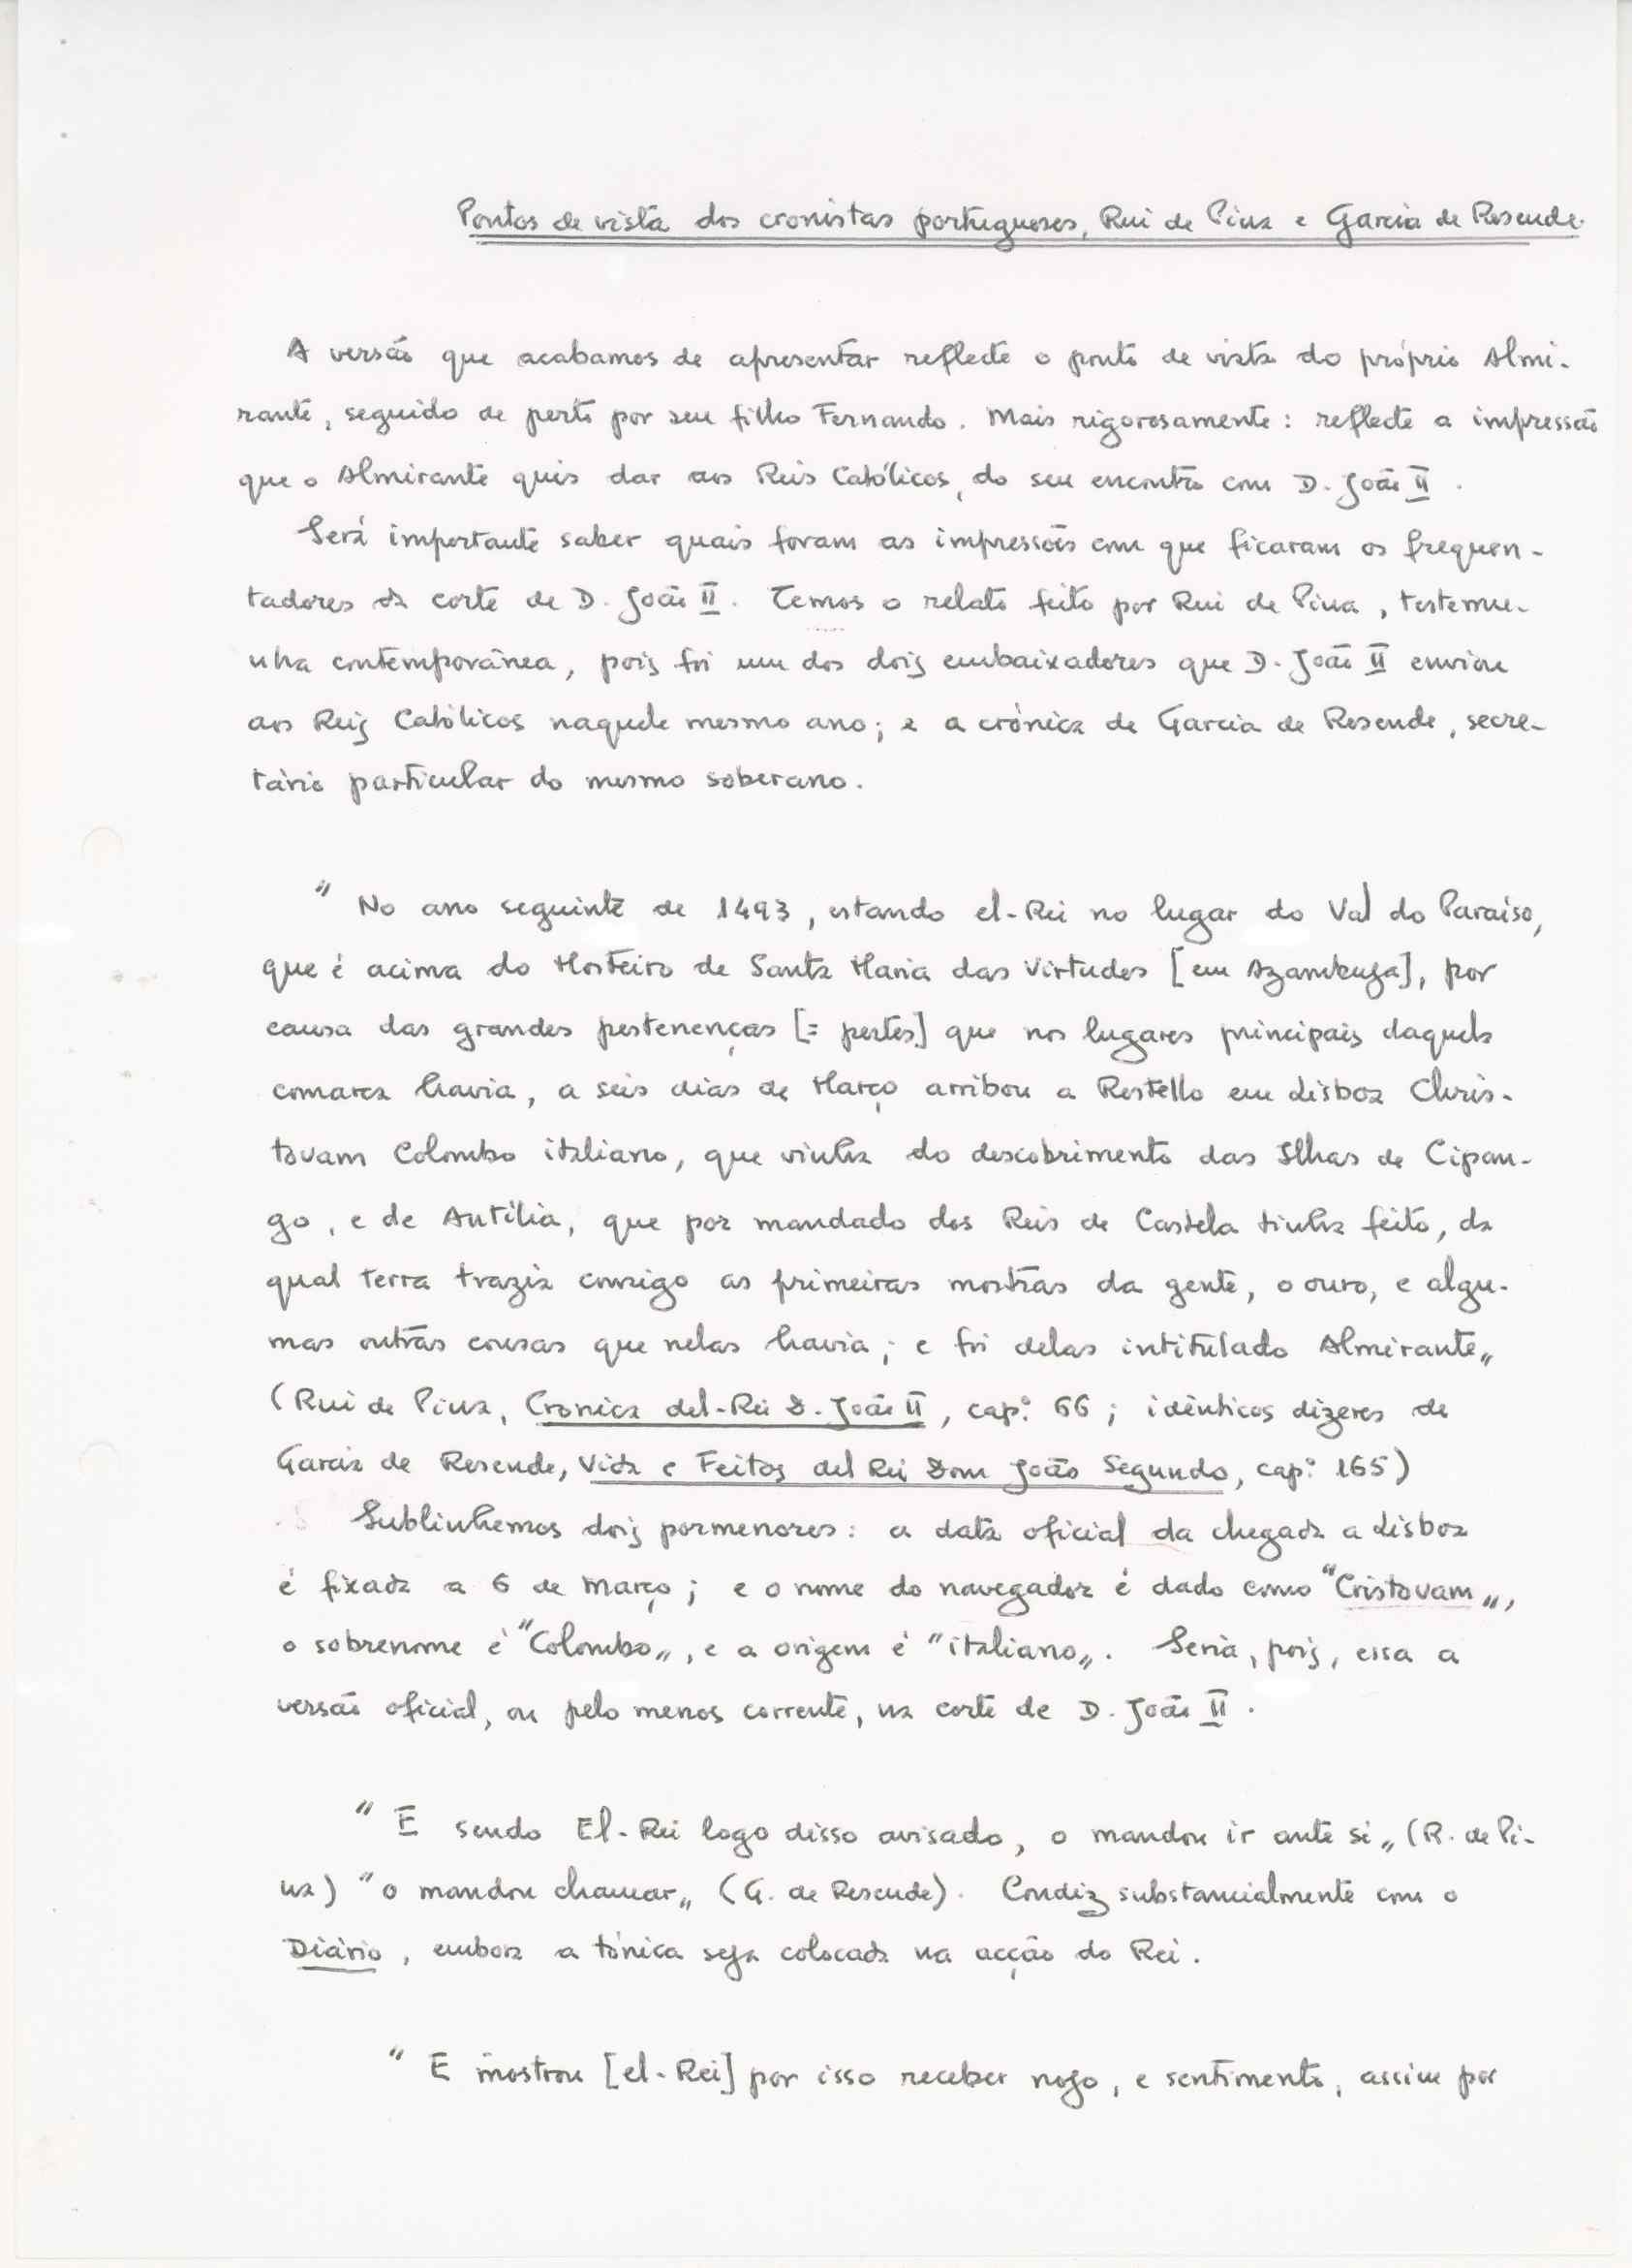 Pontos de vista dos cronistas portugueses, Rui de Pina e Garcia de Resende.
A versão que acabamos de apresentar reflecte o ponto de vista do próprio Almi-
rante, seguido de perto por seu filho Fernando. Mais rigorosamente: reflecte a impressão
que o Almirante quis dar aos Reis Católicos, do seu encontro com D. João II.
Será importante saber quais foram as impressões com que ficaram os frequen-
tadores da corte de D. João II. Temos o relato feito por Rui de Pina, testemu-
nha contemporânea, pois foi um dos dois embaixadores que D. João II enviou
aos Reis Católicos naquele mesmo ano; e a crónica de Garcia de Resende, secre-
tário particular do mesmo soberano.
"No ano seguinte de 1493, estando el-Rei no lugar do Val do Paraíso,
que é acima do Mosteiro de Santa Maria das Virtudes [em Azambuja], por
causa das grandes pestenenças [= pestes] que nos lugares principais daquela
comarca havia, a seis dias de Março arribou a Restello em Lisboa Chris-
tovam Colombo italiano, que vinha do descobrimento das Ilhas de Cipan-
go, e de Antília, que por mandado dos Reis de Castela tinha feito, da
qual terra trazia consigo as primeiras mostras da gente, o ouro, e algu-
mas outras cousas que nelas havia; e foi delas intitulado Almirante"
(Rui de Pina, Cronica del-Rei D. João II, cap.º 66; idênticos dizeres de
Garcia de Resende, Vida e Feitos del Rei Dom João Segundo, cap.º 165)
Sublinhemos dois pormenores: a data oficial da chegada a Lisboa
é fixada a 6 de Março; e o nome do navegador é dado como "Cristovam",
o sobrenome é "Colombo", e a origem é "italiano". Seria, pois, essa a
versão oficial, ou pelo menos corrente, na corte de D. João II.
"E sendo El-Rei logo disso avisado, o mandou ir ante si" (R. de Pi-
na) "o mandou chamar" (G. de Resende). Condiz substancialmente com o
Diário, embora a tónica seja colocada na acção do Rei.
"E mostrou [el-Rei] por isso receber nojo, e sentimento, assim por